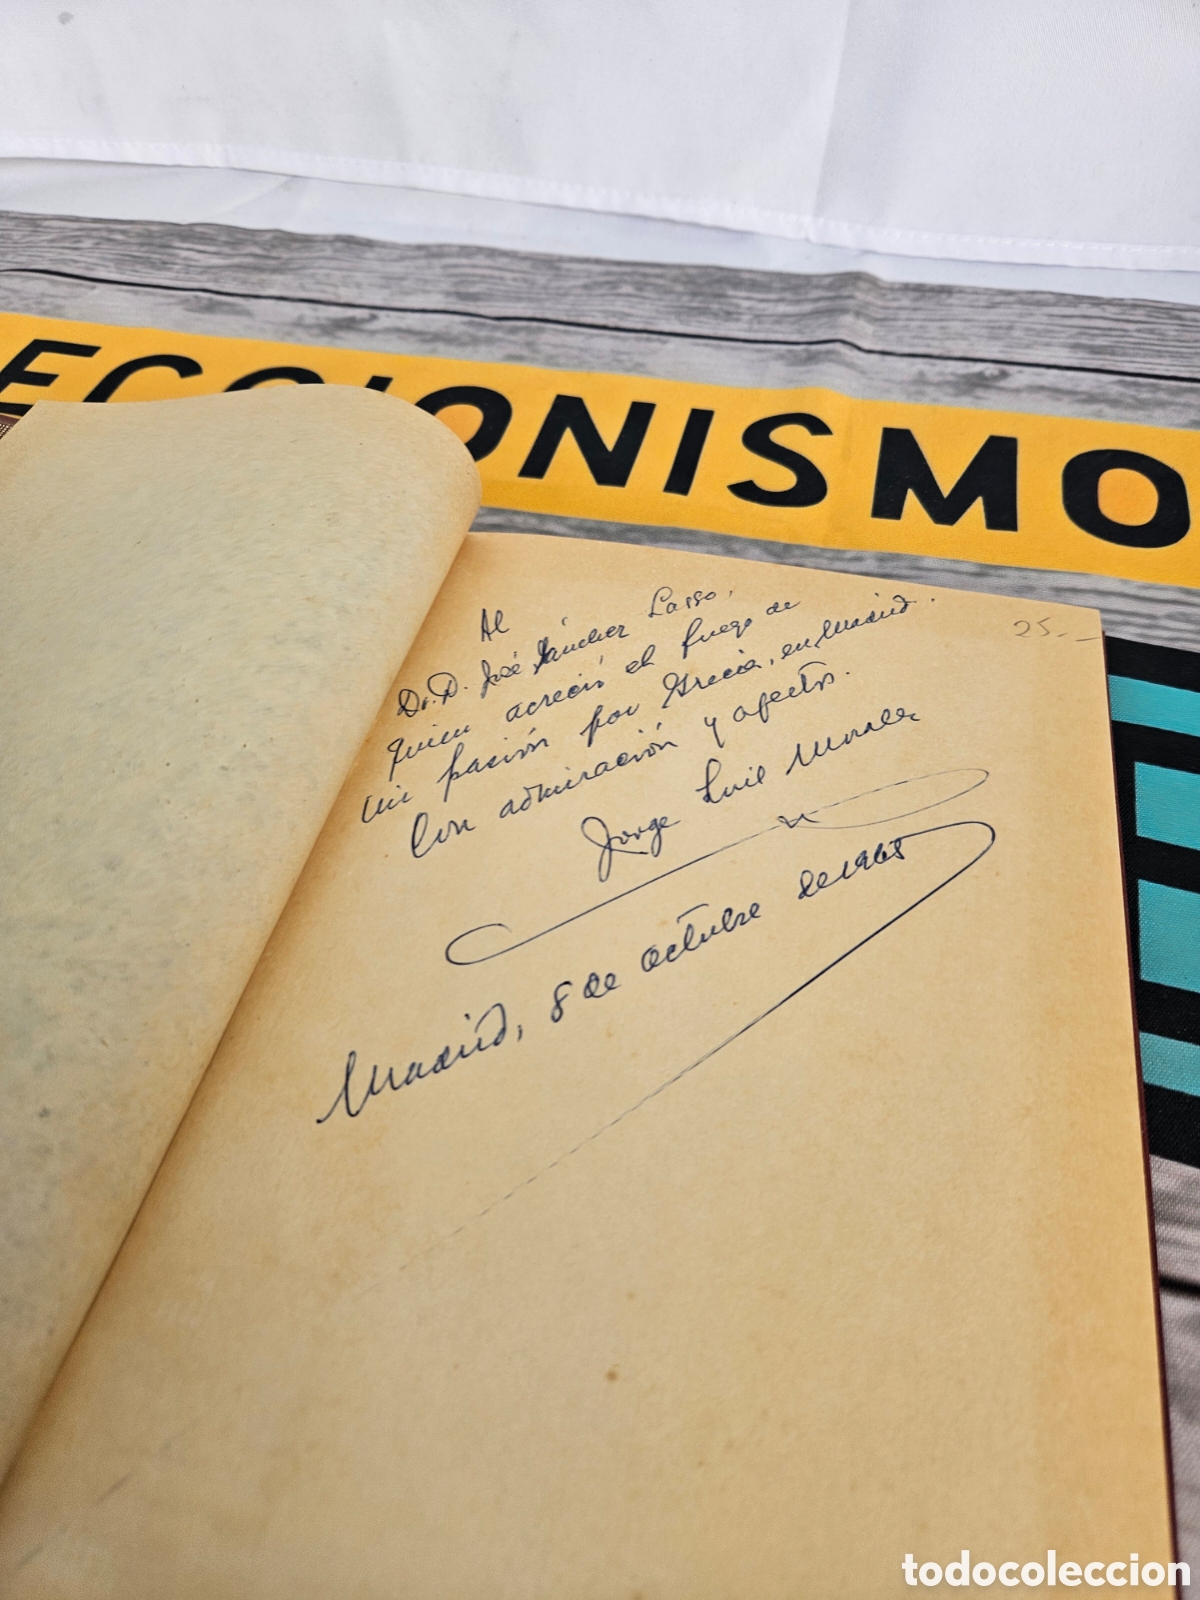 ECCIONISMO
Al
Dr. D. José Sánchez Lasso,
quien acreció el fuego de
mi pasión por Grecia, en Madrid.
Con admiración y afectos.
Jorge Luis Morales
Madrid, 8 de octubre de 1965
25.-
todocoleccion